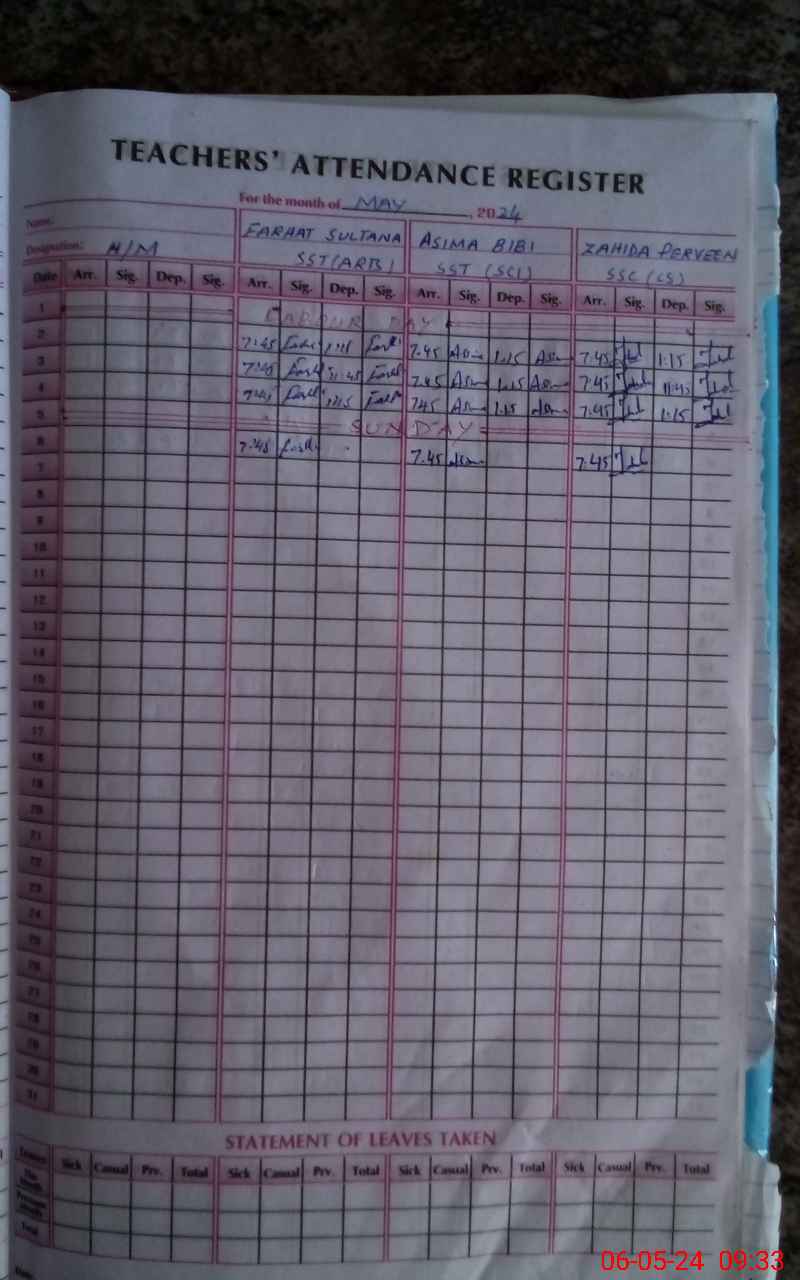 TEACHERS' ATTENDANCE REGISTER
For the month of MAY, 2024
Name:
Designation: H/M
FARHAT SULTANA
SST (ARB)
ASIMA BIBI
SST (SCI)
ZAHIDA PERVEEN
SSC (CS)
Date Arr. Sig. Dep. Sig. Arr. Sig. Dep. Sig. Arr. Sig. Dep. Sig. Arr. Sig. Dep. Sig.
1 LABOUR DAY
2 7:45 1:15 7.45 1:15 7.45 1:15
3 7:45 11:45 7.45 1:15 7.45 11:45
4 7:45 1:15 7.45 1:15 7.45 1:15
5 SUNDAY
6 7:45 7.45 7.45
7
8
9
10
11
12
13
14
15
16
17
18
19
20
21
22
23
24
25
26
27
28
29
30
31
STATEMENT OF LEAVES TAKEN
Leaves Sick Casual Prv. Total Sick Casual Prv. Total Sick Casual Prv. Total Sick Casual Prv. Total
This Month
Previous
Total
06-05-24 09:33